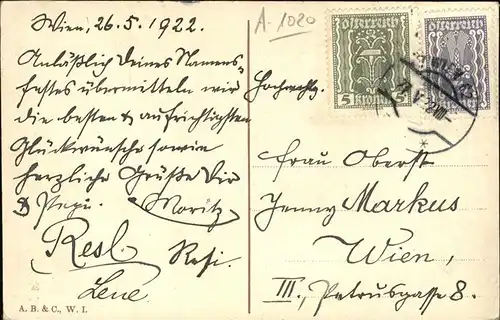 Wien, 26.5.1922.
Anläßlich Deines Namens-
festes übermitteln wir
die besten & aufrichtigsten
Glückwünsche sowie
herzliche Grüße Dir
& Pepi. Moritz
Resl. Resi.
Lene
A. B. & C., W. I.
A-1020
Österreich
5 Kronen
Österreich
Hochwohlg.
Frau Oberst
Jenny Markus
Wien,
III., Petrusgasse 8.